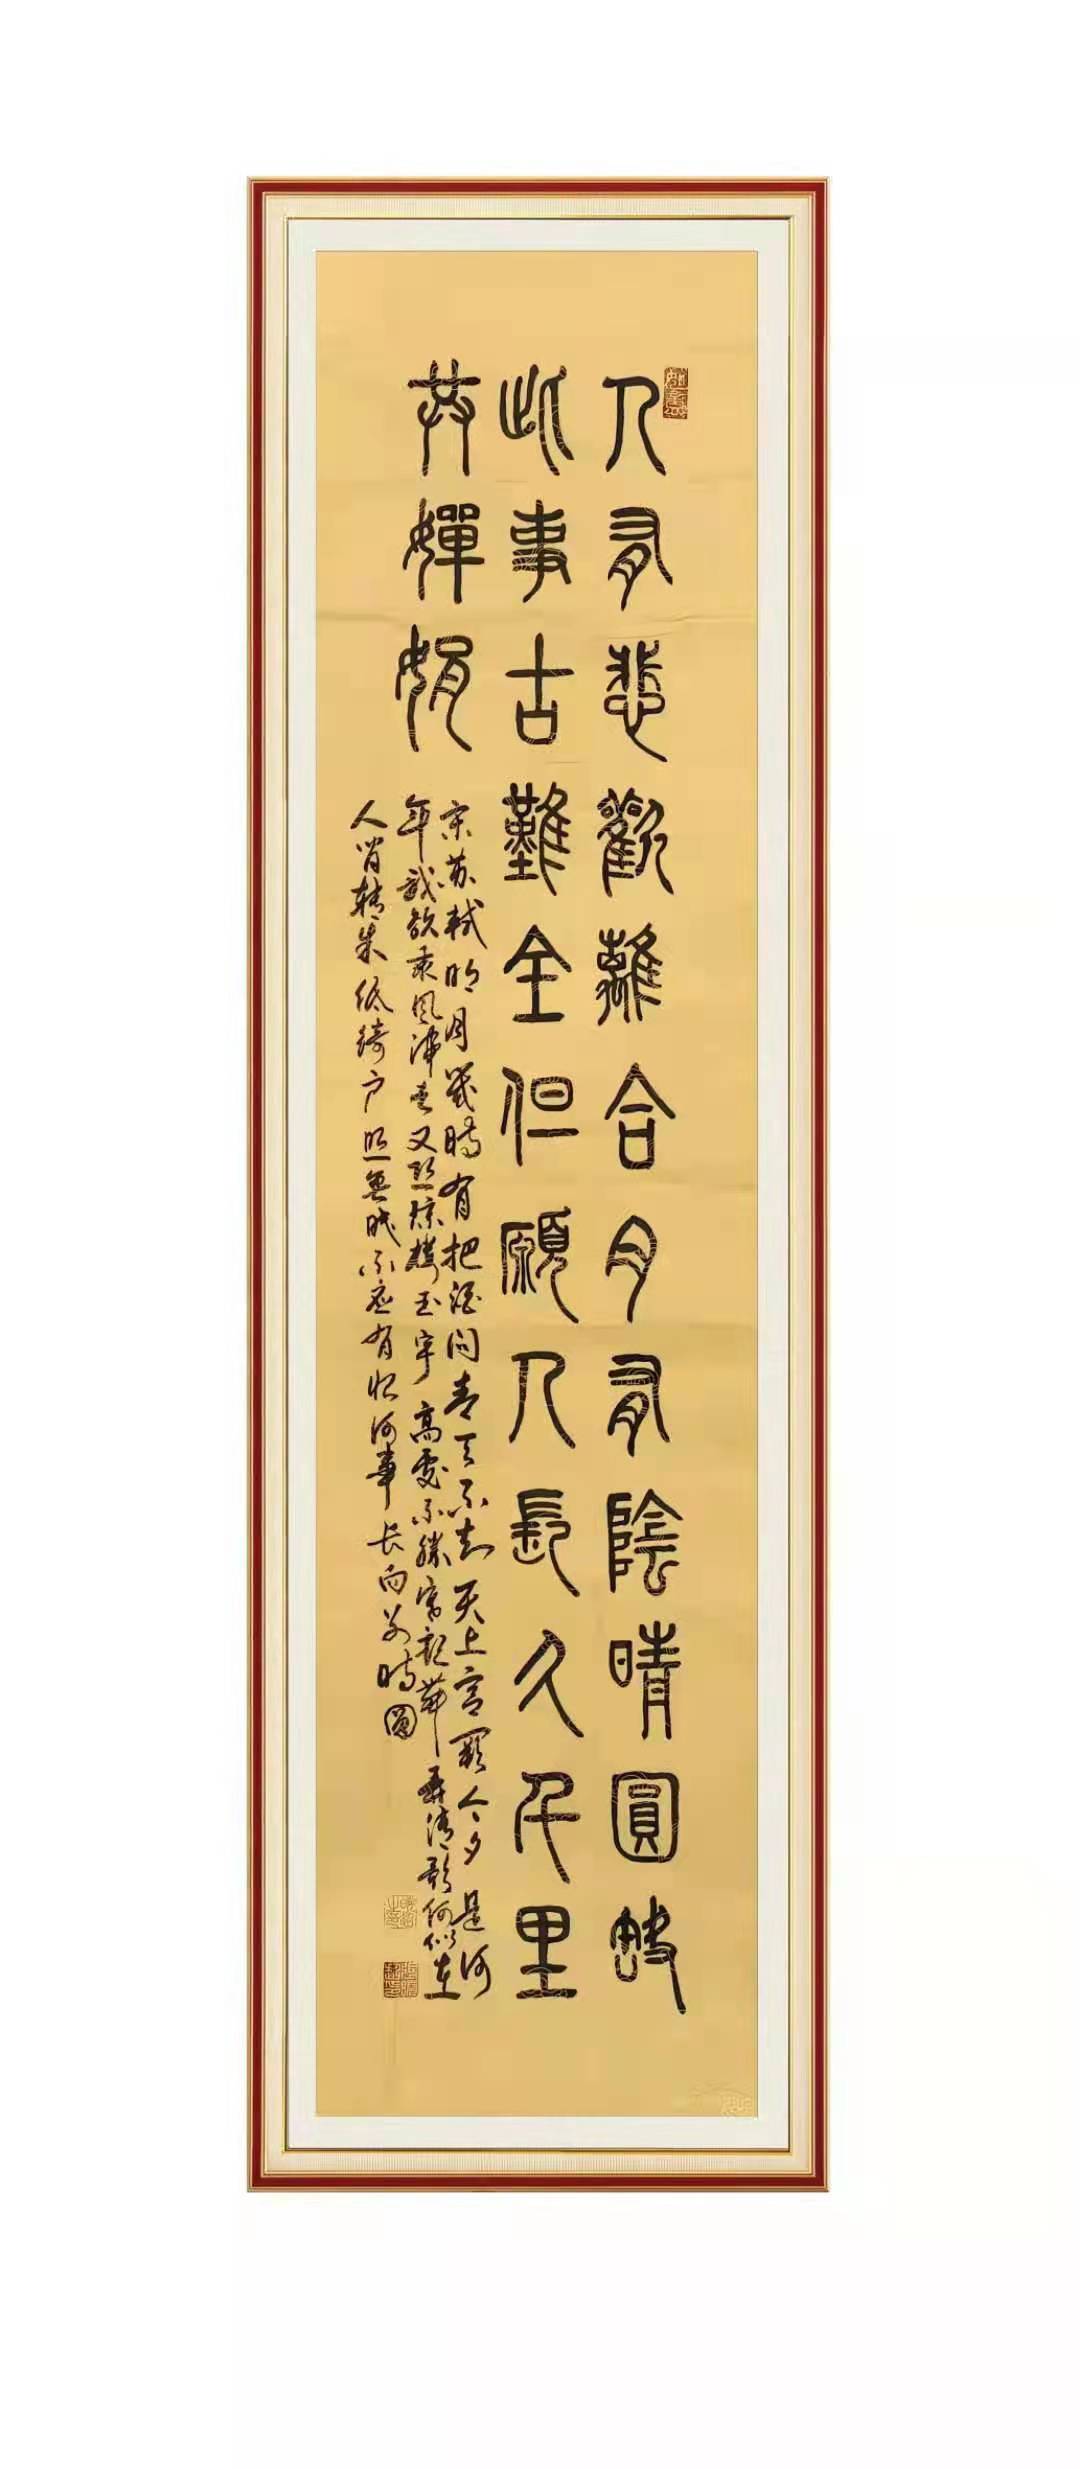 人有悲歡離合月有陰晴圓缺
此事古難全但願人長久千里
共嬋娟
宋苏轼明月幾時有把酒问青天不知天上宫阙今夕是何
年我欲乘风归去又恐琼楼玉宇高处不胜寒起舞弄清影何似在
人间转朱低绮户照無眠不应有恨何事长向别時圆